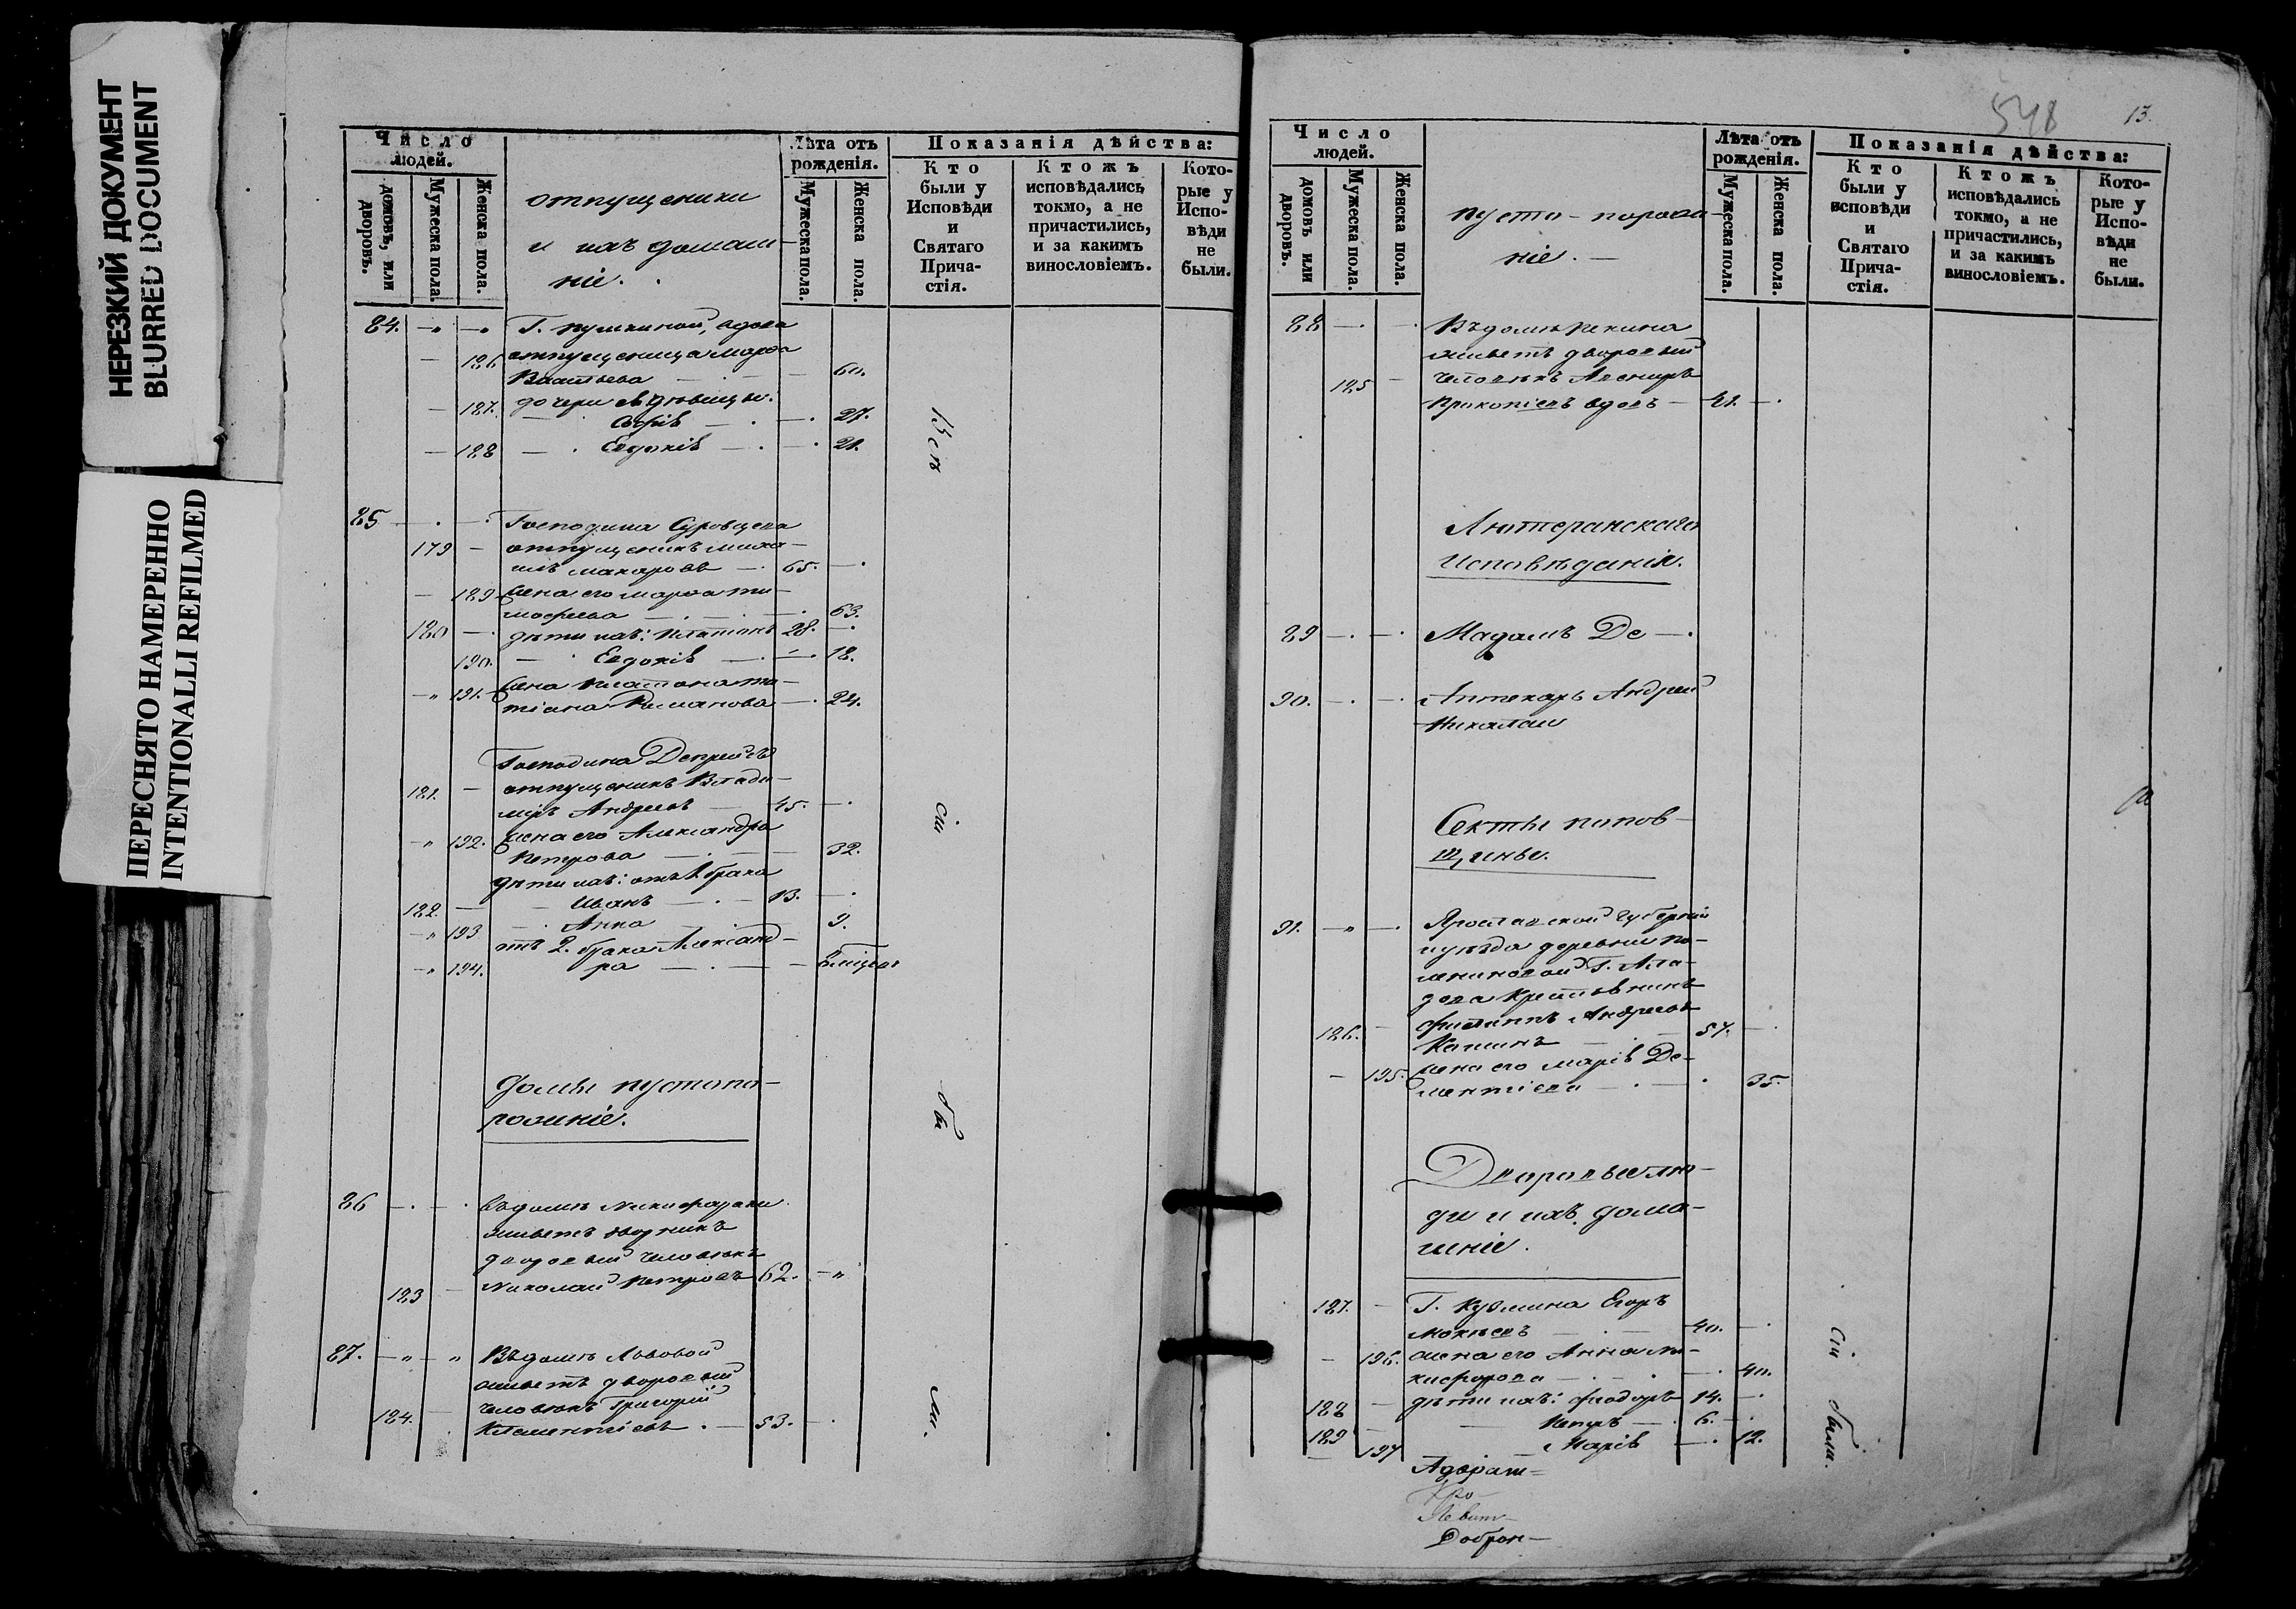 НЕРЕЗКИЙ ДОКУМЕНТ
BLURRED DOCUMENT
ПЕРЕСНЯТО НАМЕРЕННО
INTENTIONALLI REFILMED
Число людей.
домовъ, или дворовъ.
Мужеска пола.
Женска пола.
отпущеники
и ихъ домаш-
ніе.
Лѣта отъ рожденія.
Мужеска пола.
Женска пола.
Показанія дѣйства:
Кто были у Исповѣди и Святаго Прича-стія.
Ктожъ исповѣдались токмо, а не причастились, и за какимъ винословіемъ.
Кото-рые у Испо-вѣди не были.
84. Г. Пушкиной, вдова
186 отпущеница Марѳа
60.
187. дочери ея дѣвицы.
Софія 27.
188 Евдокія 21.
85 Господина Суровцева
179 отпущеникъ Миха-
илъ Макаровъ 65.
189 Жена его Марѳа Ти-
моѳеева 63.
180 дѣти ихъ: Платонъ 28.
190. Евдокія 18.
191. Жена Платона Та-
тіана Романова 24.
Господина
181. отпущеникъ Влади-
миръ Андреевъ 45.
192. Жена его Александра
Петрова 32.
дѣти ихъ: отъ 1 брака
182. Иванъ 13.
193 Анна 9.
отъ 2. брака Александ-
194. ра
Домы пустопо-
розжніе.
86 Въ домѣ Никифораки
живетъ дворникъ
дворовый человѣкъ
183 Николай Петровъ 62.
87. Въ домѣ Львовой
живетъ дворовый
184. человѣкъ Григорій
Клементіевъ. 53.
Всѣ
сіи
бы
ли.
548 13.
Число людей.
домовъ или дворовъ.
Мужеска пола.
Женска пола.
пусто-порозж-
ніе.
Лѣта отъ рожденія.
Мужеска пола.
Женска пола.
Показанія дѣйства:
Кто были у исповѣди и Святаго Прича-стія.
Ктожъ исповѣдались токмо, а не причастились, и за какимъ винословіемъ.
Кото-рые у Испо-вѣди не были.
88 Въ домѣ
живетъ дворовый
185 человѣкъ
Прокопіевъ вдовъ 41.
Лютеранскаго
Исповѣданія.
89 Мадамъ Де
90. Аптекарь Андрей
Николаи
Секты попов-
щины.
91. Ярославской губерніи
уѣзда деревни
Г.
Крестьянинъ
186. Филиппъ Андреевъ
57.
195. Жена его Марія Де-
ментіева 35.
Дворовые лю-
ди и ихъ дома-
шніе.
187. Г. Кузмина Егоръ
Мокѣевъ 40.
196. Жена его Анна Ни-
кифорова 40.
188 дѣти ихъ: Ѳеодоръ 14.
189 Петръ 6.
197 Марія 12.
сіи были.
Доброн-